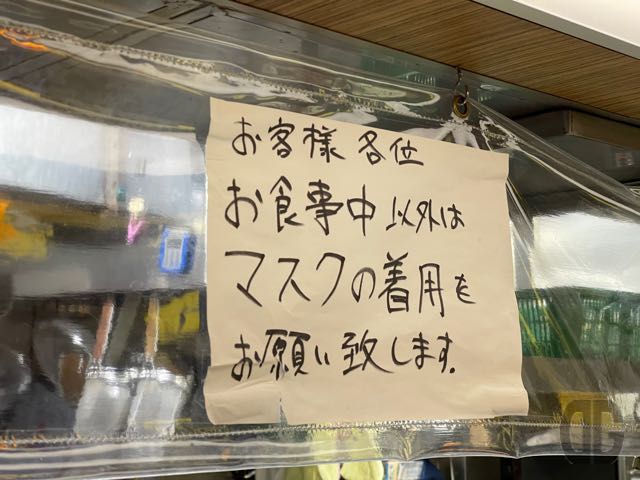 お客様各位
お食事中以外は
マスクの着用を
お願い致します.